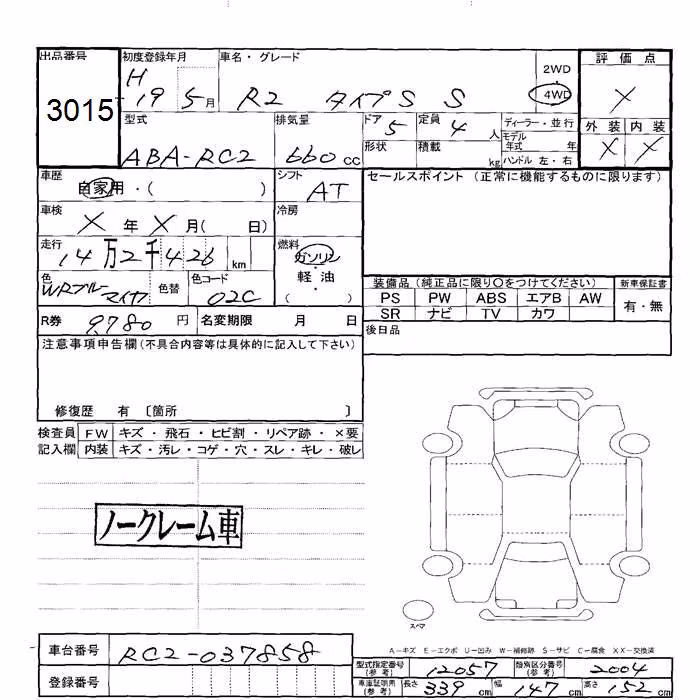 出品番号 初度登録年月 車名・グレード 評価点
3015 H 19 5月 R2 タイプS S 2WD 4WD X
型式 排気量 ドア 定員 ディーラー・並行 外装 内装
ABA-RC2 660cc 5 4人 モデル年式 年 X X
形状 積載 kg ハンドル 左・右
車歴 シフト セールスポイント (正常に機能するものに限ります)
自家用・( ) AT
車検 冷房
X年X月( 日)
走行 燃料
14万2千426km ガソリン
色 色替 色コード 軽・油
WRブルーマイカ 02C ( )
装備品 (純正品に限り○をつけてください) 新車保証書
PS PW ABS エアB AW 有・無
SR ナビ TV カワ
R券 9780円 名変期限 月 日 後日品
注意事項申告欄(不具合内容等は具体的に記入して下さい)
修復歴 有 〔箇所 〕
検査員 FW キズ・飛石・ヒビ割・リペア跡・×要
記入欄 内装 キズ・汚レ・コゲ・穴・スレ・キレ・破レ
ノークレーム車
スペア
A-キズ E-エクボ U-凹み W-補修跡 S-サビ C-腐食 XX-交換済
車台番号 RC2-037858
登録番号
型式指定番号(参考) 12057 類別区分番号(参考) 2004
車庫証明用(参考) 長さ 339cm 幅 147cm 高さ 152cm